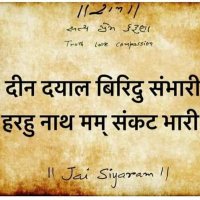 ||राम||
सत्य प्रेम करुणा
Truth love compassion
दीन दयाल बिरिदु संभारी
हरहु नाथ मम् संकट भारी
|| Jai Siyaram ||